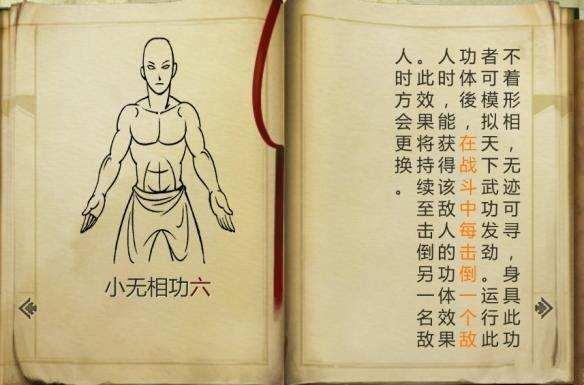 小无相功六
不着形相，无迹可寻，身具此功
者可模拟天下武功发劲。运行此
功体後，在战斗中每击倒一个敌
人时，能获得该敌人的功体效果
。此效果将持续至击倒另一名敌
人时方会更换。